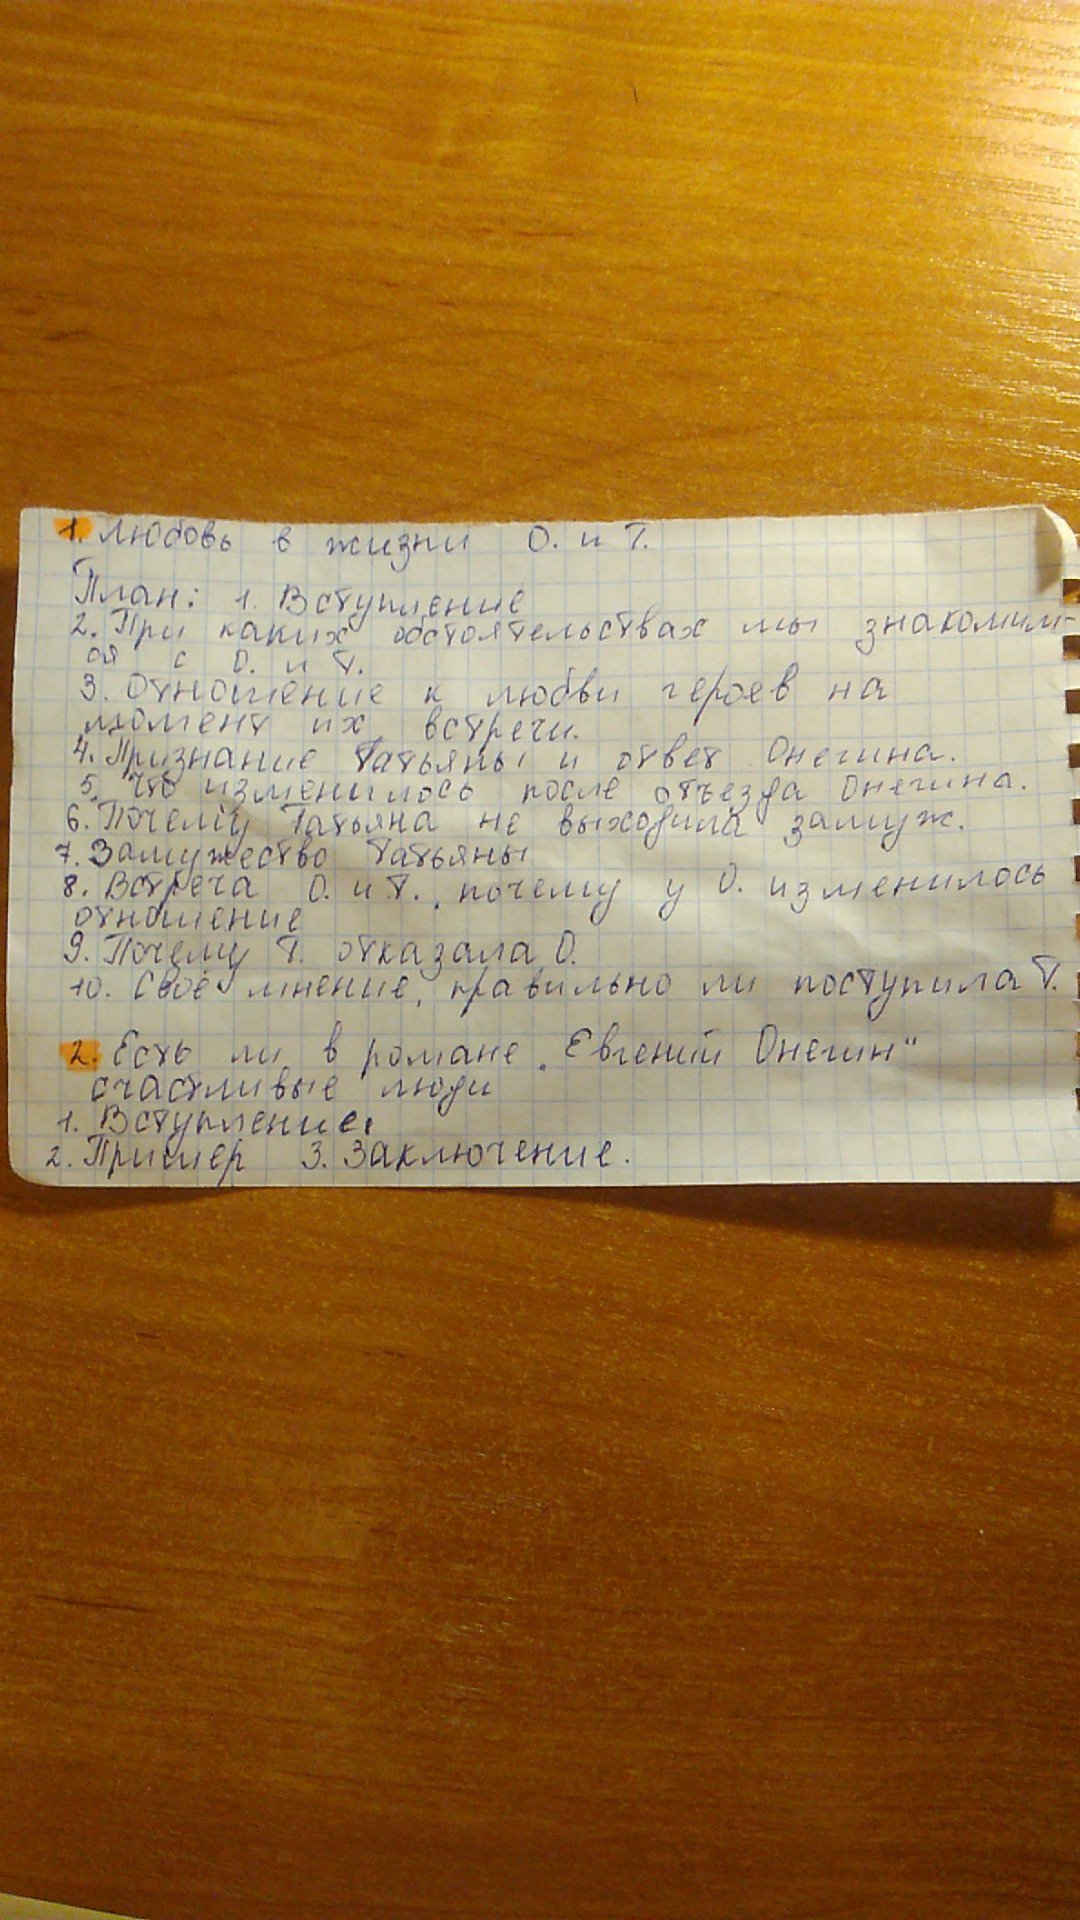 1. Любовь в жизни О. и Т.
План: 1. Вступление
2. При каких обстоятельствах мы знакомим-
ся с О. и Т.
3. Отношение к любви героев на
момент их встречи.
4. Признание Татьяны и ответ Онегина.
5. Что изменилось после отъезда Онегина.
6. Почему Татьяна не выходила замуж.
7. Замужество Татьяны
8. Встреча О. и Т., почему у О. изменилось
отношение
9. Почему Т. отказала О.
10. Своё мнение, правильно ли поступила Т.
2. Есть ли в романе „Евгений Онегин"
счастливые люди
1. Вступление.
2. Пример 3. Заключение.